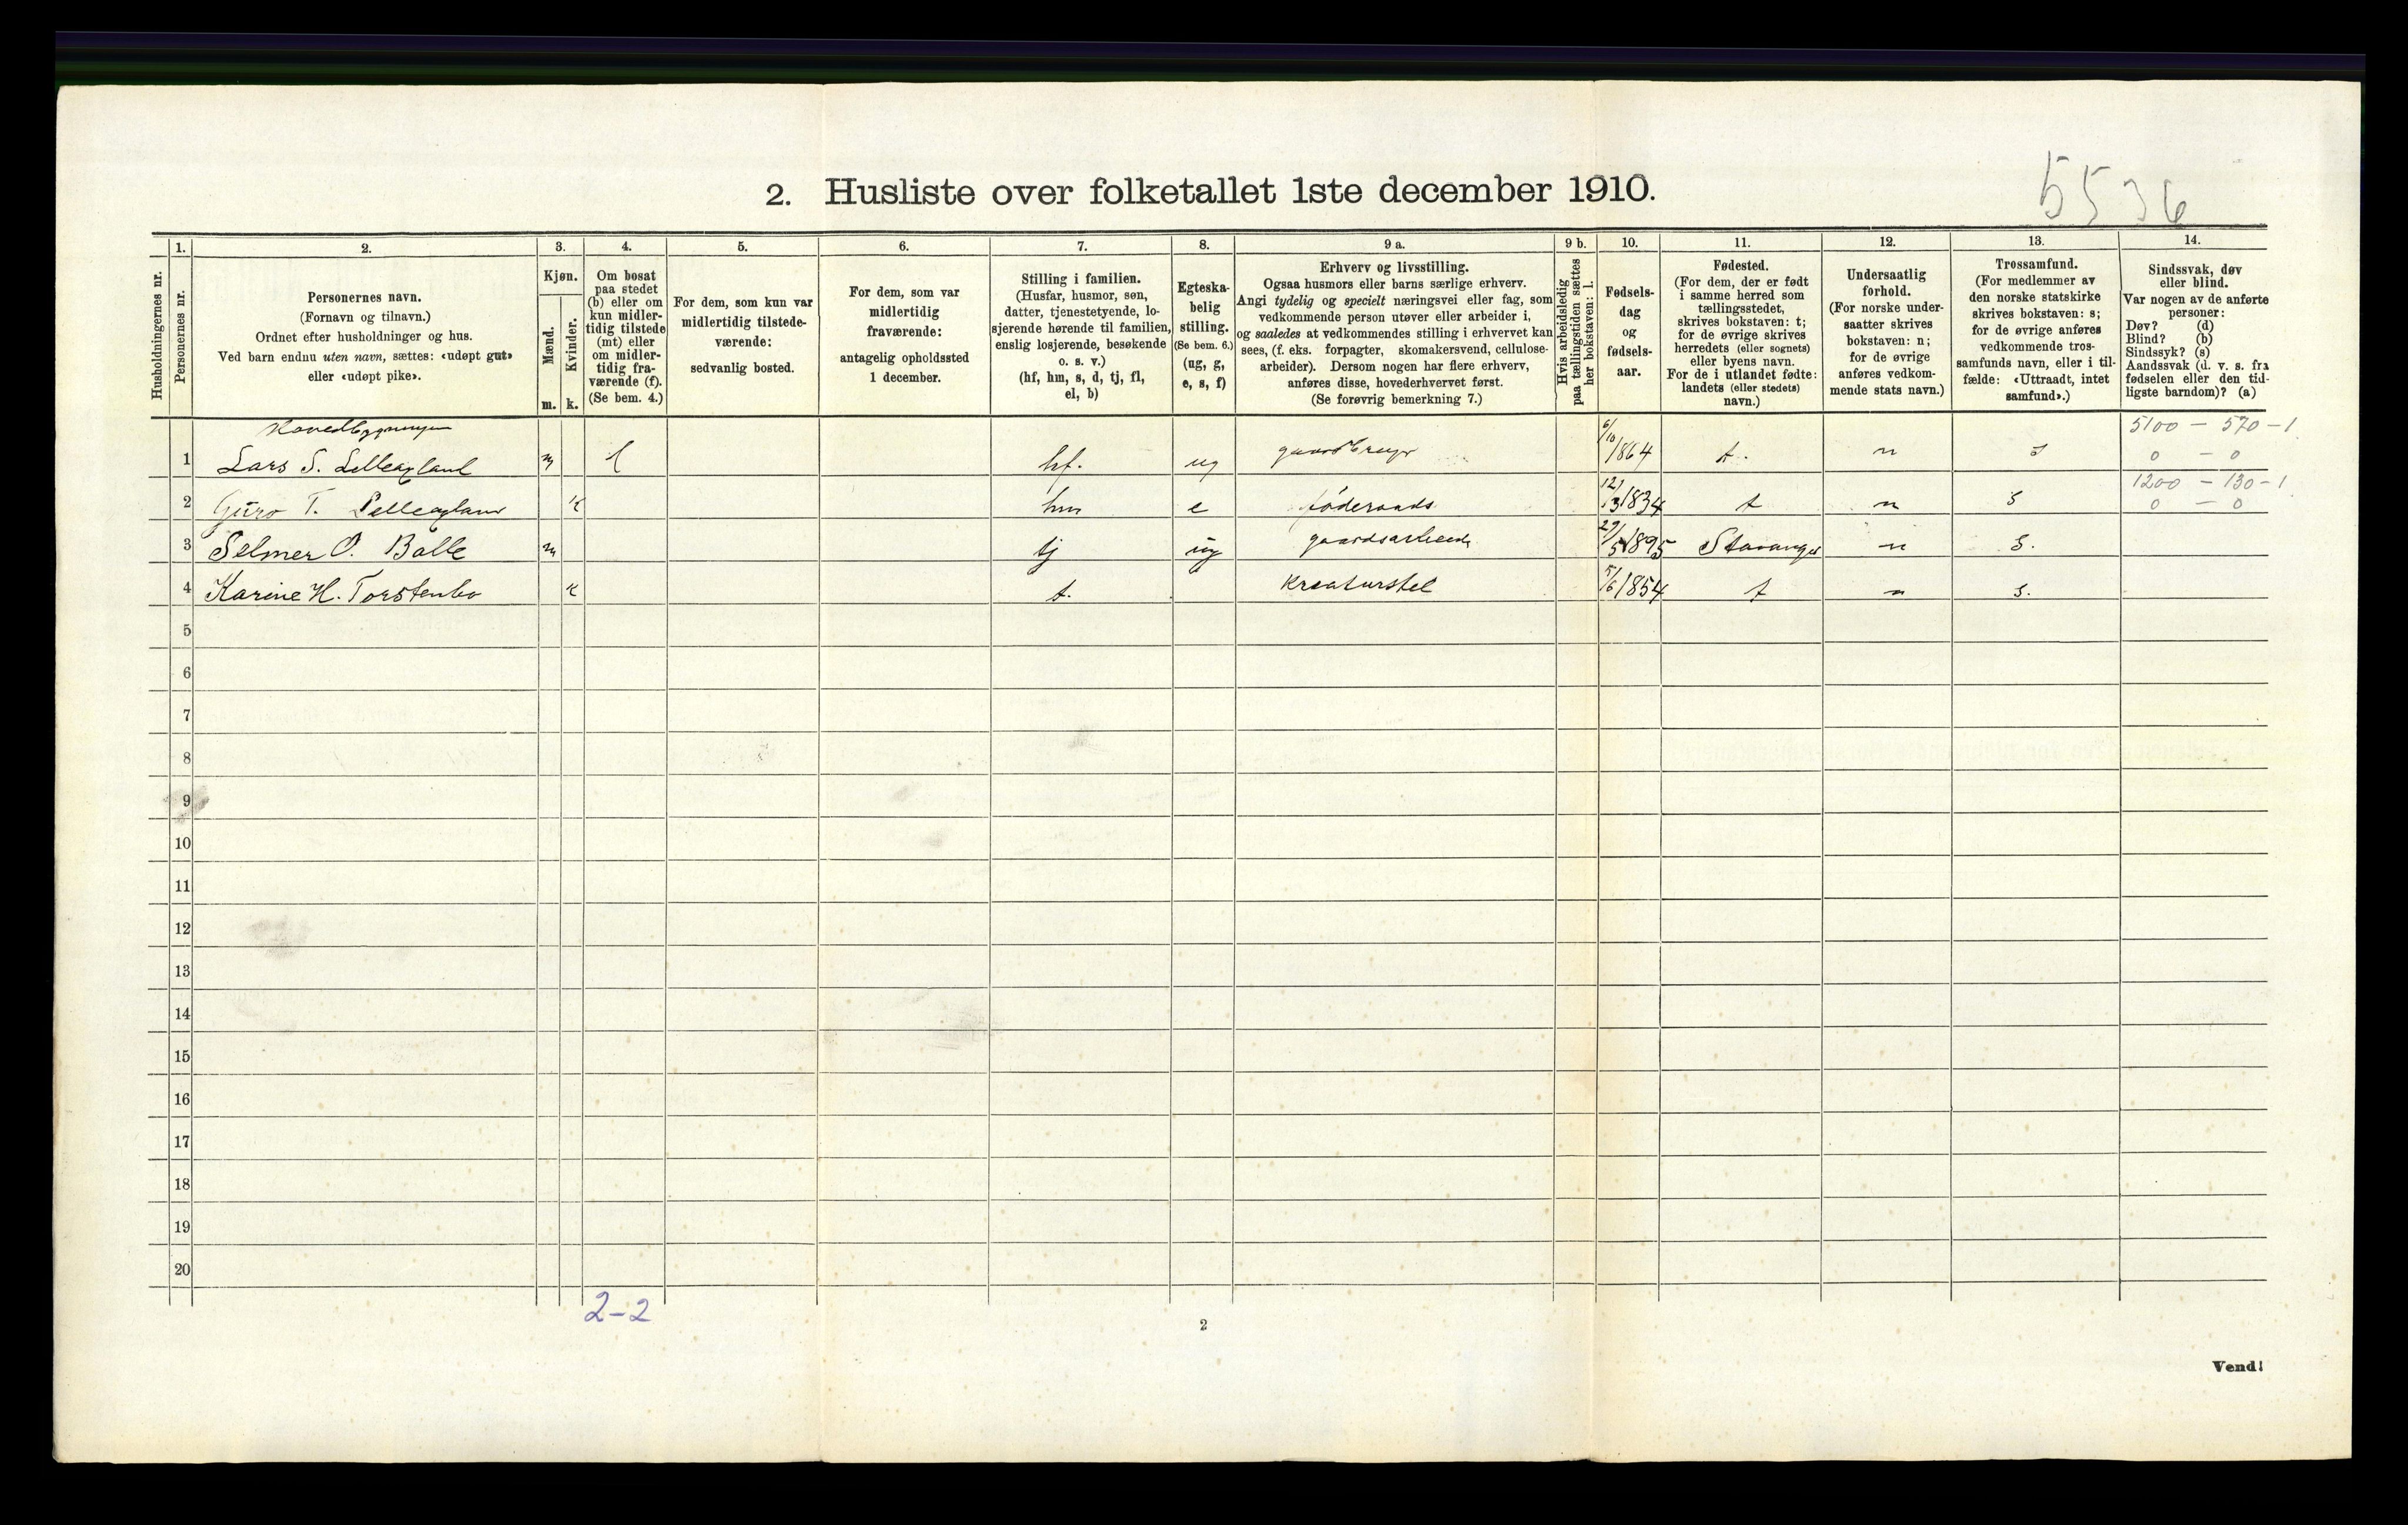 5536
2. Husliste over folketallet 1ste december 1910.
Husholdningernes nr.
1.
Personernes nr.
2.
Personernes navn.
(Fornavn og tilnavn.)
Ordnet efter husholdninger og hus.
Ved barn endnu uten navn, sættes: «udøpt gut»
eller «udøpt pike».
3.
Kjøn.
Mænd.
Kvinder.
m. k.
4.
Om bosat
paa stedet
(b) eller om
kun midler-
tidig tilstede
(mt) eller
om midler-
tidig fra-
værende (f).
(Se bem. 4.)
5.
For dem, som kun var
midlertidig tilstede-
værende:
sedvanlig bosted.
6.
For dem, som var
midlertidig
fraværende:
antagelig opholdssted
1 december.
7.
Stilling i familien.
(Husfar, husmor, søn,
datter, tjenestetyende, lo-
sjerende hørende til familien,
enslig losjerende, besøkende
o. s. v.)
(hf, hm, s, d, tj, fl,
el, b)
8.
Egteska-
belig
stilling.
(Se bem. 6.)
(ug, g,
e, s, f)
9 a.
Erhverv og livsstilling.
Ogsaa husmors eller barns særlige erhverv.
Angi tydelig og specielt næringsvei eller fag, som
vedkommende person utøver eller arbeider i,
og saaledes at vedkommendes stilling i erhvervet kan
sees, (f. eks. forpagter, skomakersvend, cellulose-
arbeider). Dersom nogen har flere erhverv,
anføres disse, hovederhvervet først.
(Se forøvrig bemerkning 7.)
9 b.
Hvis arbeidsledig
paa tællingstiden sættes
her bokstaven: l.
10.
Fødsels-
dag
og
fødsels-
aar.
11.
Fødested.
(For dem, der er født
i samme herred som
tællingsstedet,
skrives bokstaven: t;
for de øvrige skrives
herredets (eller sognets)
eller byens navn.
For de i utlandet fødte:
landets (eller stedets)
navn.)
12.
Undersaatlig
forhold.
(For norske under-
saatter skrives
bokstaven: n;
for de øvrige
anføres vedkom-
mende stats navn.)
13.
Trossamfund.
(For medlemmer av
den norske statskirke
skrives bokstaven: s;
for de øvrige anføres
vedkommende tros-
samfunds navn, eller i til-
fælde: «Uttraadt, intet
samfund».)
14.
Sindssvak, døv
eller blind.
Var nogen av de anførte
personer:
Døv? (d)
Blind? (b)
Sindssyk? (s)
Aandssvak (d. v. s. fra
fødselen eller den tid-
ligste barndom)? (a)
Hovedbygningen 5100 - 570 - 1
1 Lars S. Lilleagland m hf. ug gaardbruger 6/10 1864 t. n s 0 - 0
1200 - 130 - 1
2 Guro T. Lilleagland k hm e føderaads 12/3 1834 t n s 0 - 0
3 Selmer O. Balle m tj ug gaardsarbeide 29/5 1895 Stavanger n s.
4 Karine H. Torstenbo k t. Kreaturstel 5/6 1854 t n s.
5
6
7
8
9
10
11
12
13
14
15
16
17
18
19
20
2-2
2
Vend!